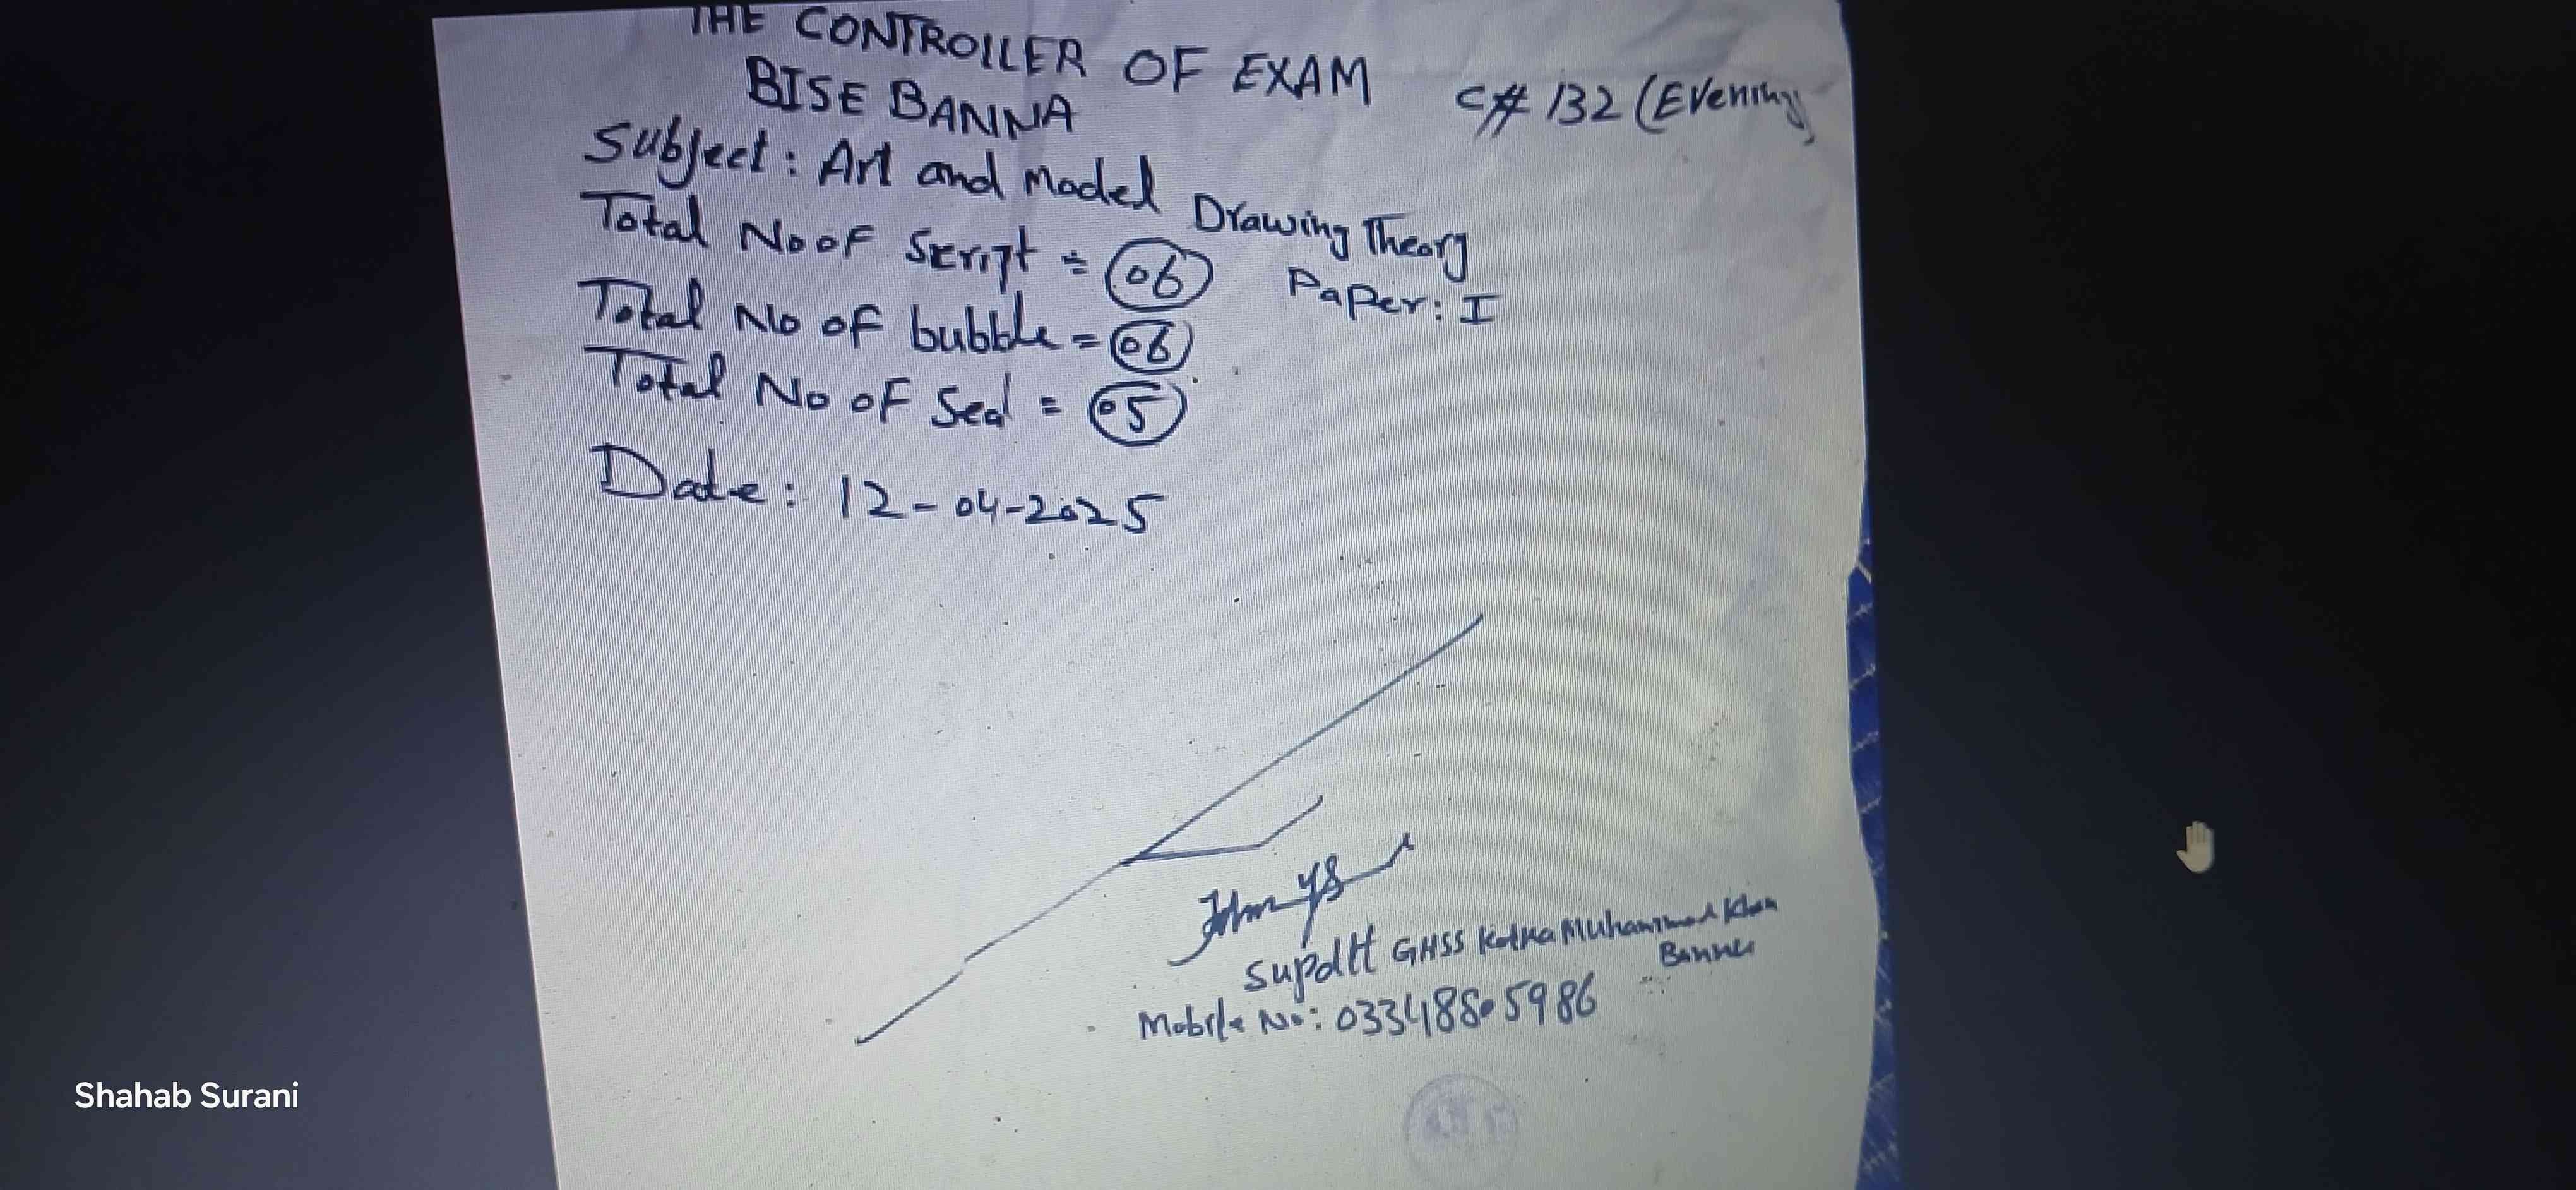 THE CONTROLLER OF EXAM
BISE BANNA
C# 132 (Evening)
Subject: Art and Model Drawing Theory
Paper: I
Total No of Script = 06
Total No of bubble = 06
Total No of Seal = 05
Date: 12-04-2025
Supdtt GHSS Kotka Muhammad Khan
Bannu
Mobile No: 03348805986
Shahab Surani